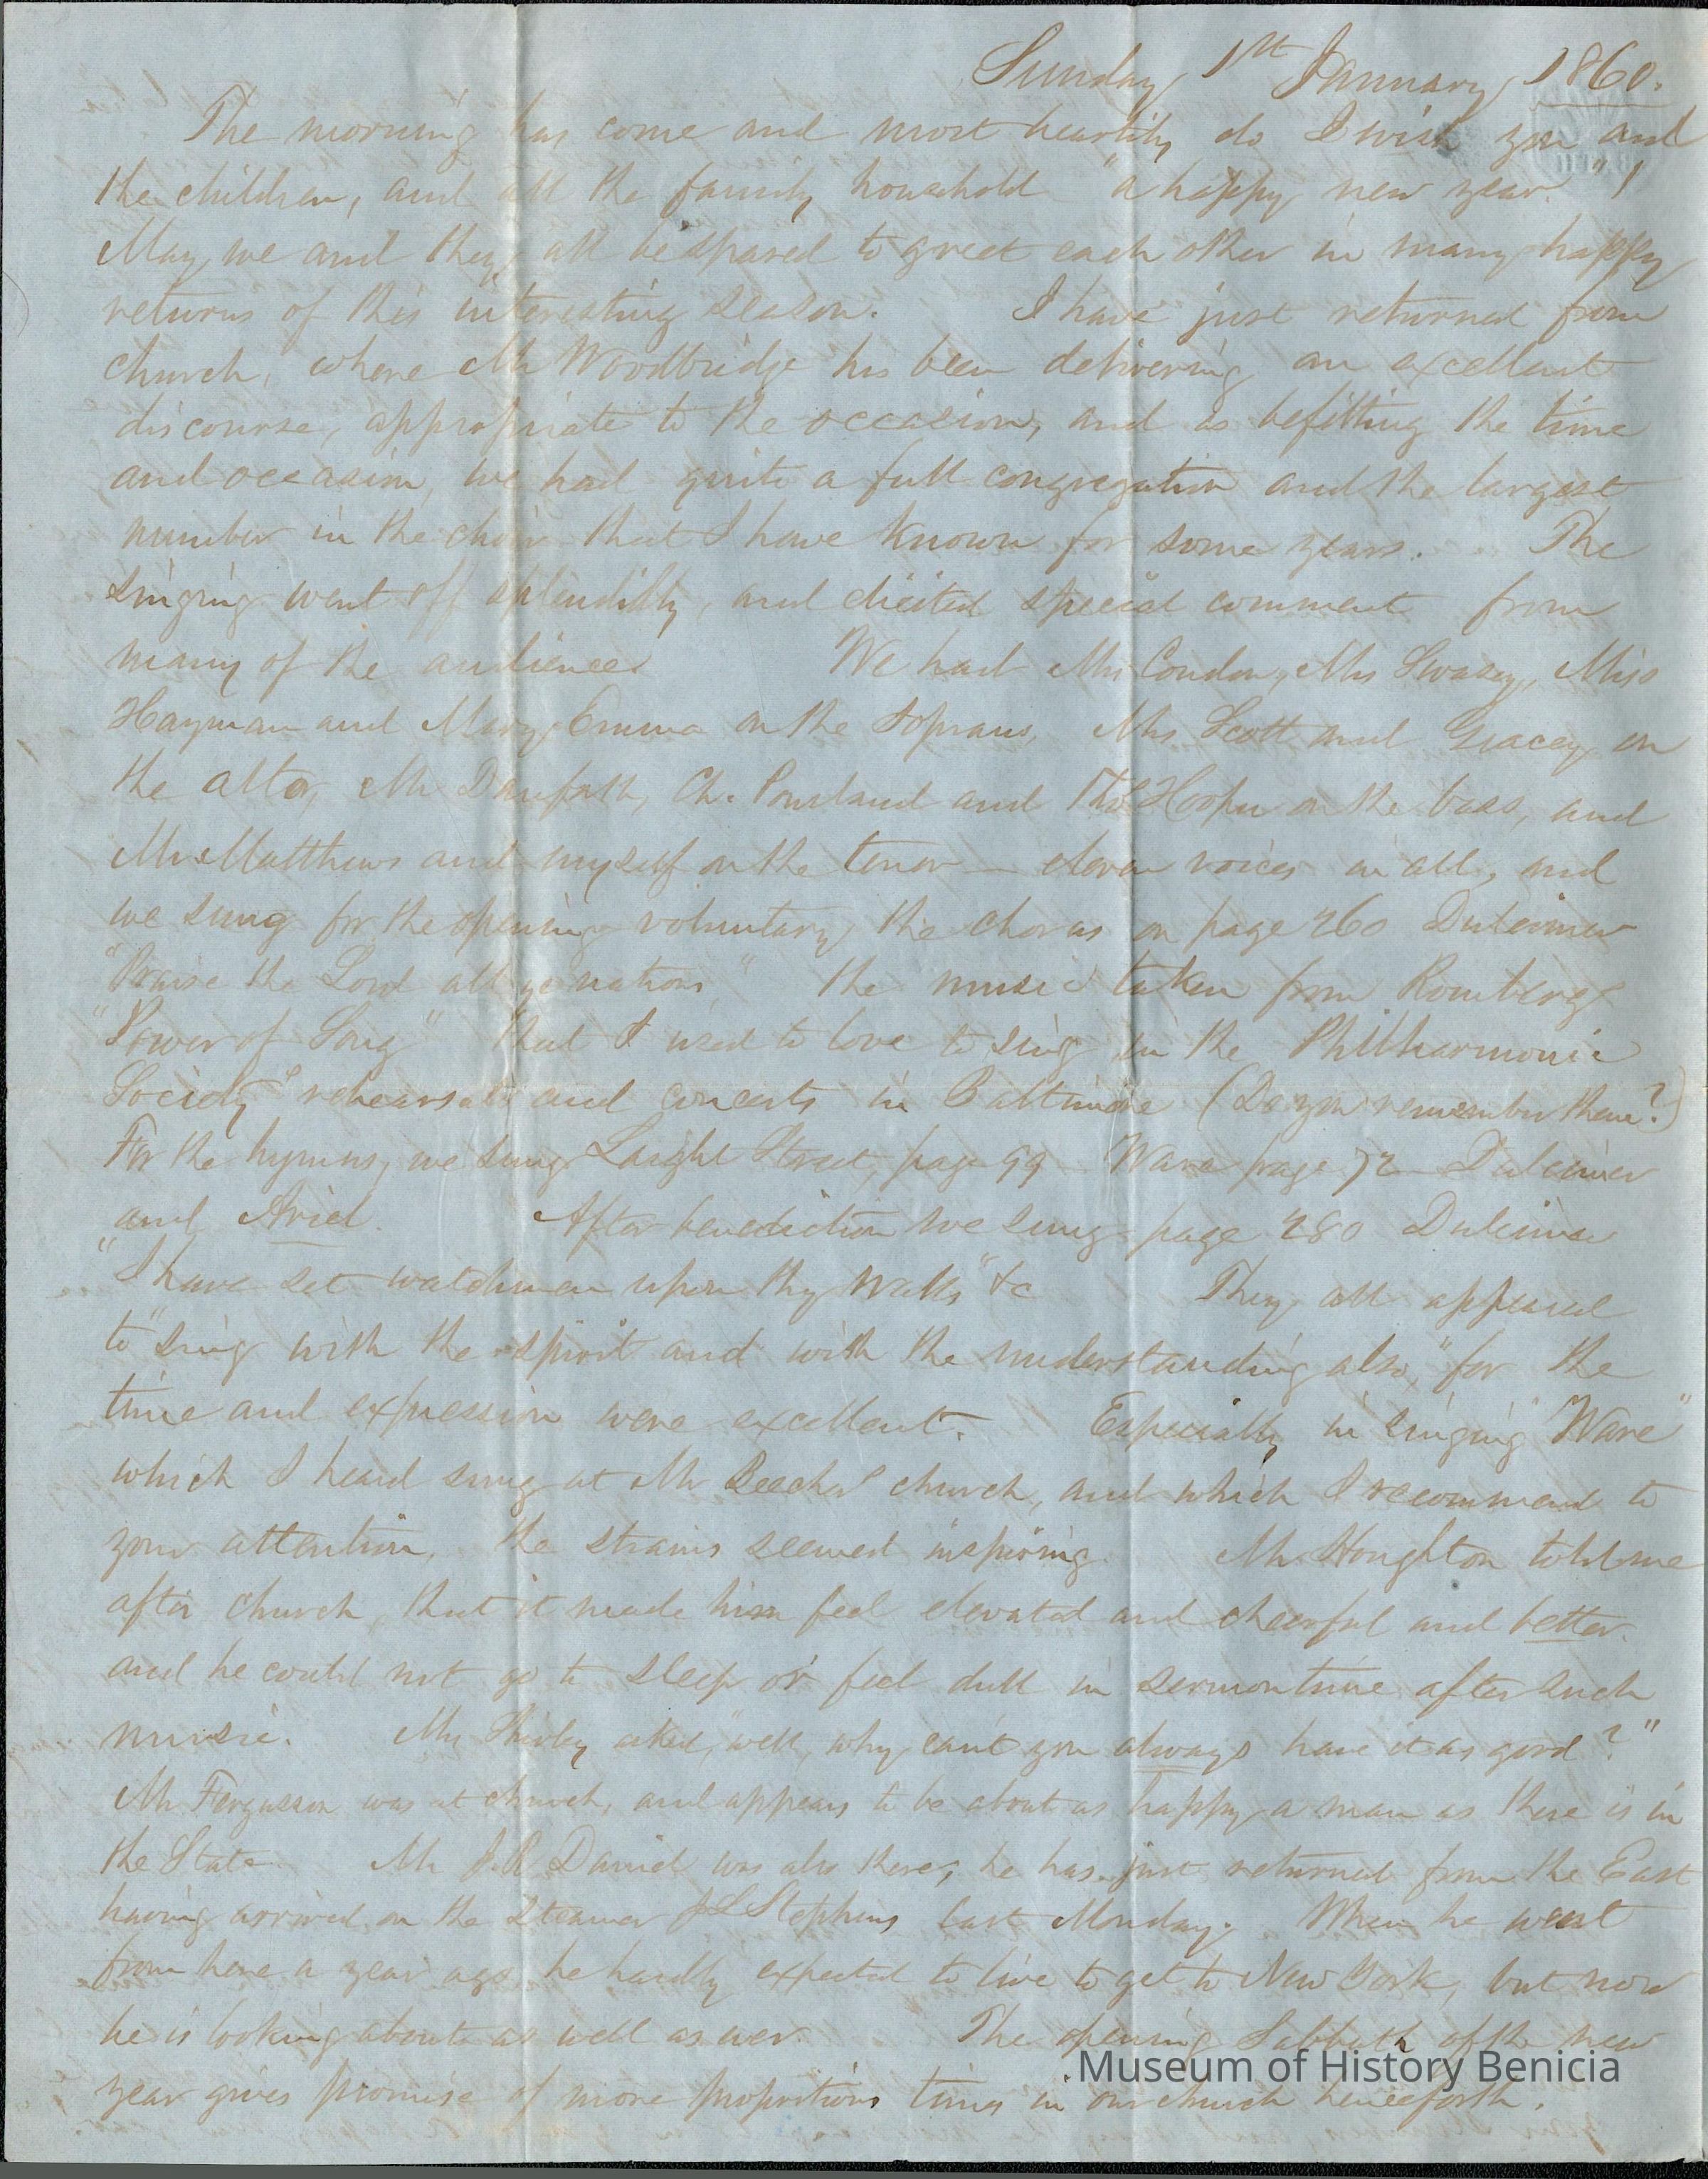 Sunday 1st January 1860.
The morning has come and most heartily do I wish you and
the children, and all the family household "a happy new year"!
May we and they all be spared to greet each other in many happy
returns of this interesting season. I have just returned from
church, where Mr Woodbridge has been delivering an excellent
discourse, appropriate to the occasion, and as befitting the time
and occasion, we had quite a full congregation and the largest
number in the choir that I have known for some years. The
singing went off splendidly, and elicited special comment from
many of the audience We had Mrs Condon, Mrs Swasey, Miss
Hayman and Mary Emma on the Soprano, Mrs Scott and Gracey on
the alto, Mr Danforth, Ch. Pourland and Hooper on the bass, and
Mr Matthews and myself on the tenor — eleven voices in all, and
we sung for the opening voluntary the chorus on page 260 Dulcimer
"Praise the Lord all ye nations" the music taken from Romberg
"Power of Song" that I used to love to sing in the Philharmonic
Society rehearsals and concerts in Baltimore (Do you remember them?)
For the hymns, we sung Laight Street, page 99 — Ware page 72 — Dulcimer
and Ariel. After benediction we sung page 280 Dulcimer
"I have set watchmen upon thy walls" &c They all appeared
to "sing with the spirit and with the understanding also," for the
time and expression were excellent. Especially in singing "Ware"
which I heard sung at Mr Beecher church, and which I recommend to
your attention, the strains seemed inspiring. Mr Houghton told me
after church, that it made him feel elevated and cheerful and better.
and he could not go to sleep or feel dull in sermon time after such
music. Mr Shirley asked, "well, why can't you always have it as good?"
Mr Fergusson was at church, and appears to be about as happy a man as there is in
the State. Mr Daniel was also there, he has just returned from the East
having arrived on the steamer J L Stephens last Monday. When he went
from here a year ago he hardly expected to live to get to New York, but now
he is looking about as well as ever. The opening Sabbath of the new
year gives promise of more propitious times in our church henceforth.
Museum of History Benicia